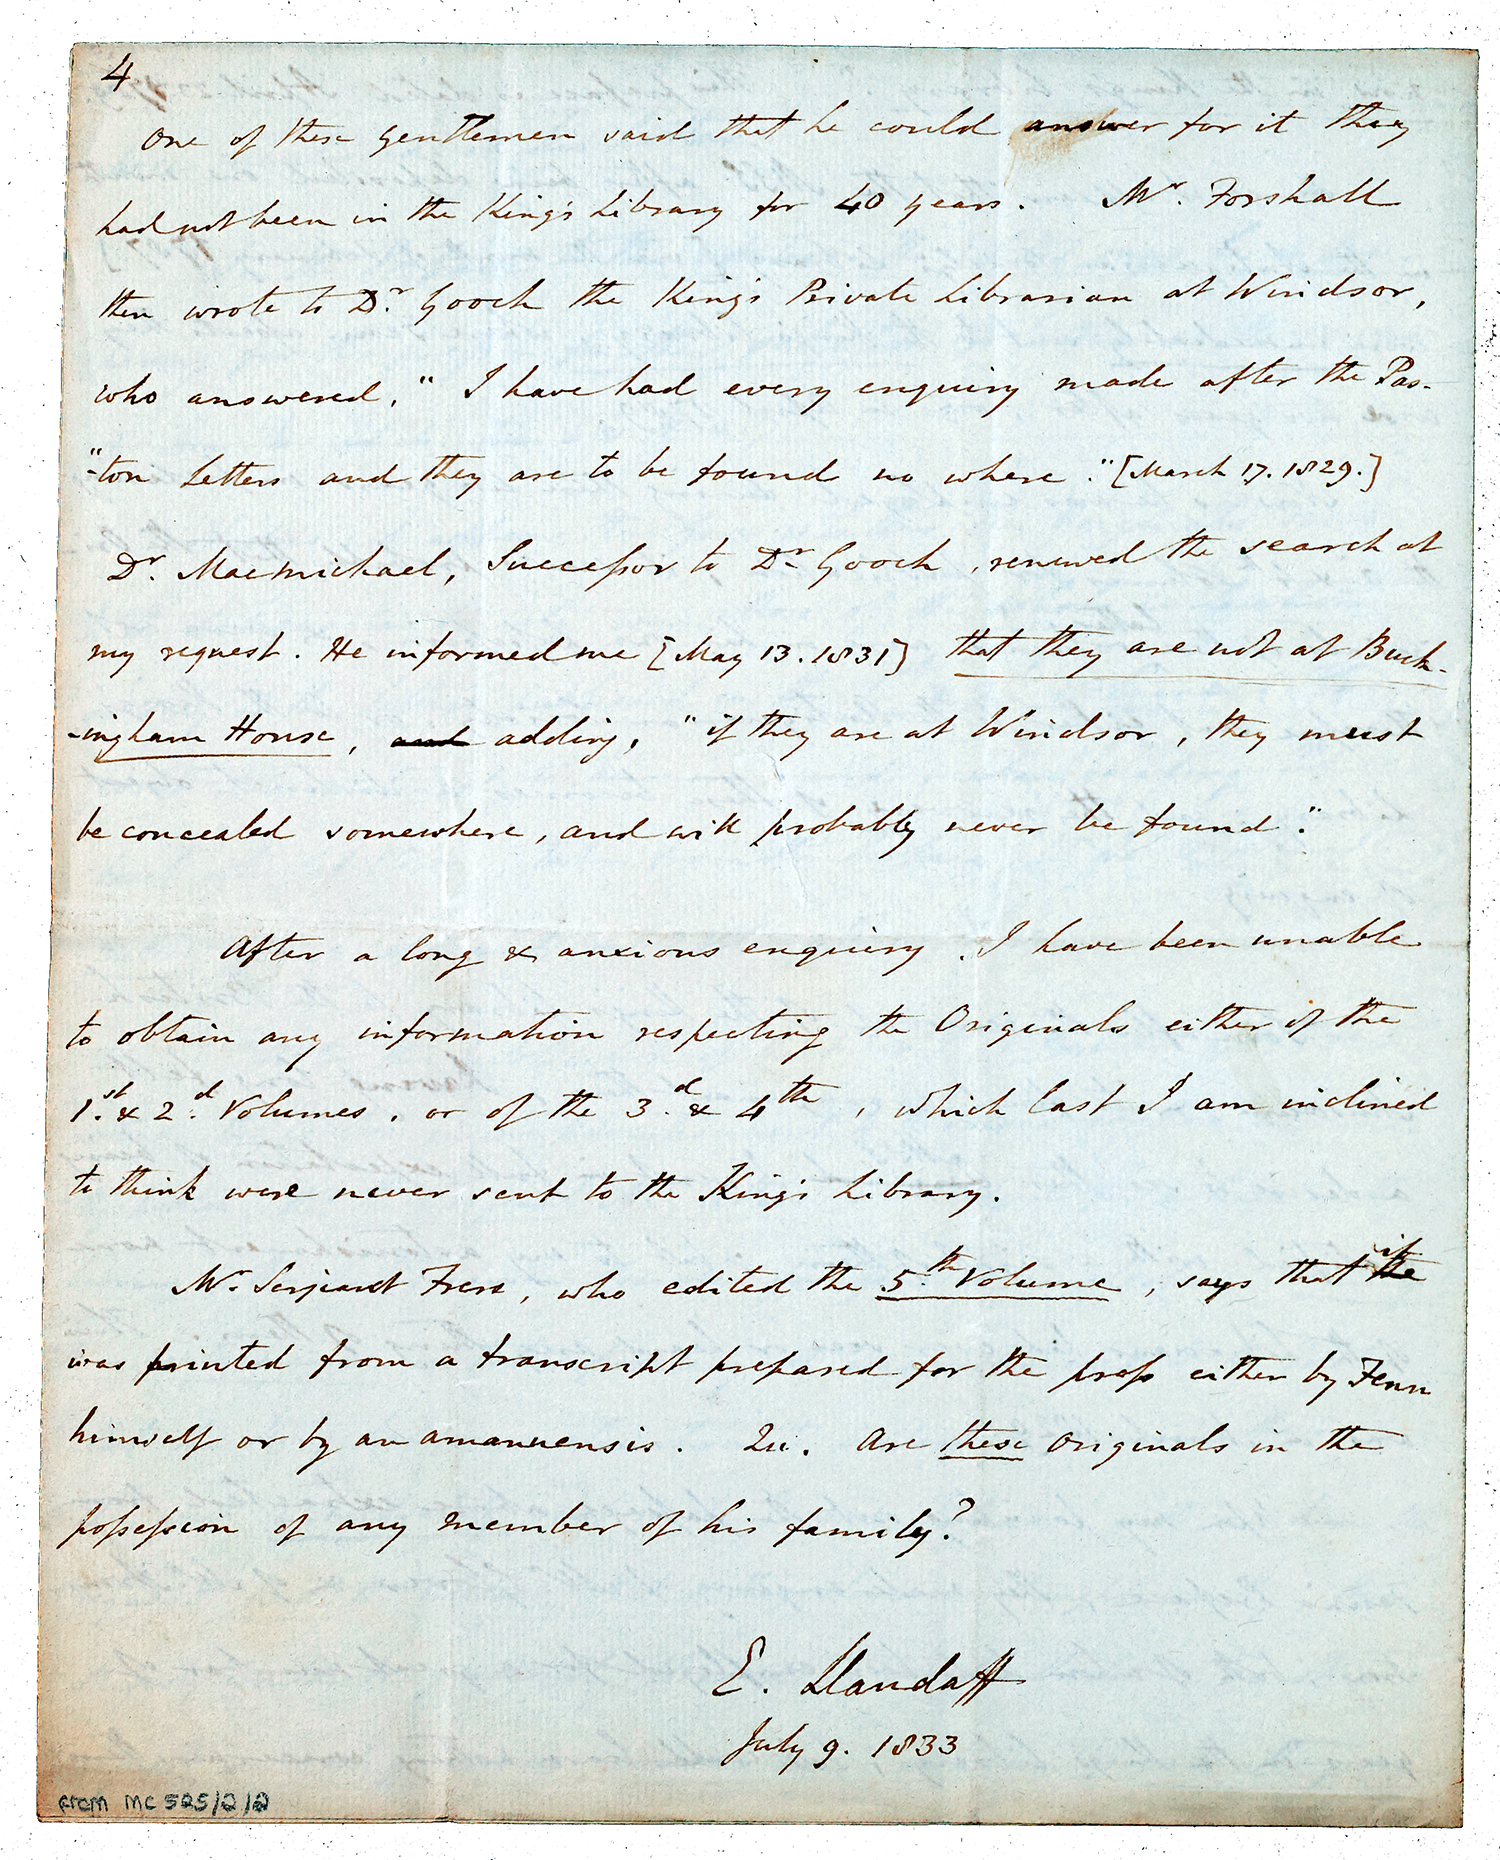 4
One of these Gentlemen said that he could answer for it they
had not been in the King's Library for 40 years. Mr. Forshall
then wrote to Dr. Gooch the King's Private Librarian at Windsor,
who answered, "I have had every enquiry made after the Pas-
"-ton Letters and they are to be found no where." [March 17. 1829.]
Dr. Macmichael, Successor to Dr. Gooch, renewed the search at
my request. He informed me [May 13. 1831] that they are not at Buck-
-ingham House, and adding, "if they are at Windsor, they must
be concealed somewhere, and will probably never be found."
After a long & anxious enquiry I have been unable
to obtain any information respecting the Originals either of the
1.st & 2.d Volumes, or of the 3.d & 4th, which last I am inclined
to think were never sent to the King's Library.
Mr. Serjeant Frere, who edited the 5.th Volume, says that the it
was printed from a transcript prepared for the press either by Fenn
himself or by an amanuensis. Qu. Are these Originals in the
possession of any member of his family?
E. Llandaff
July 9. 1833
from MC 525/2/2